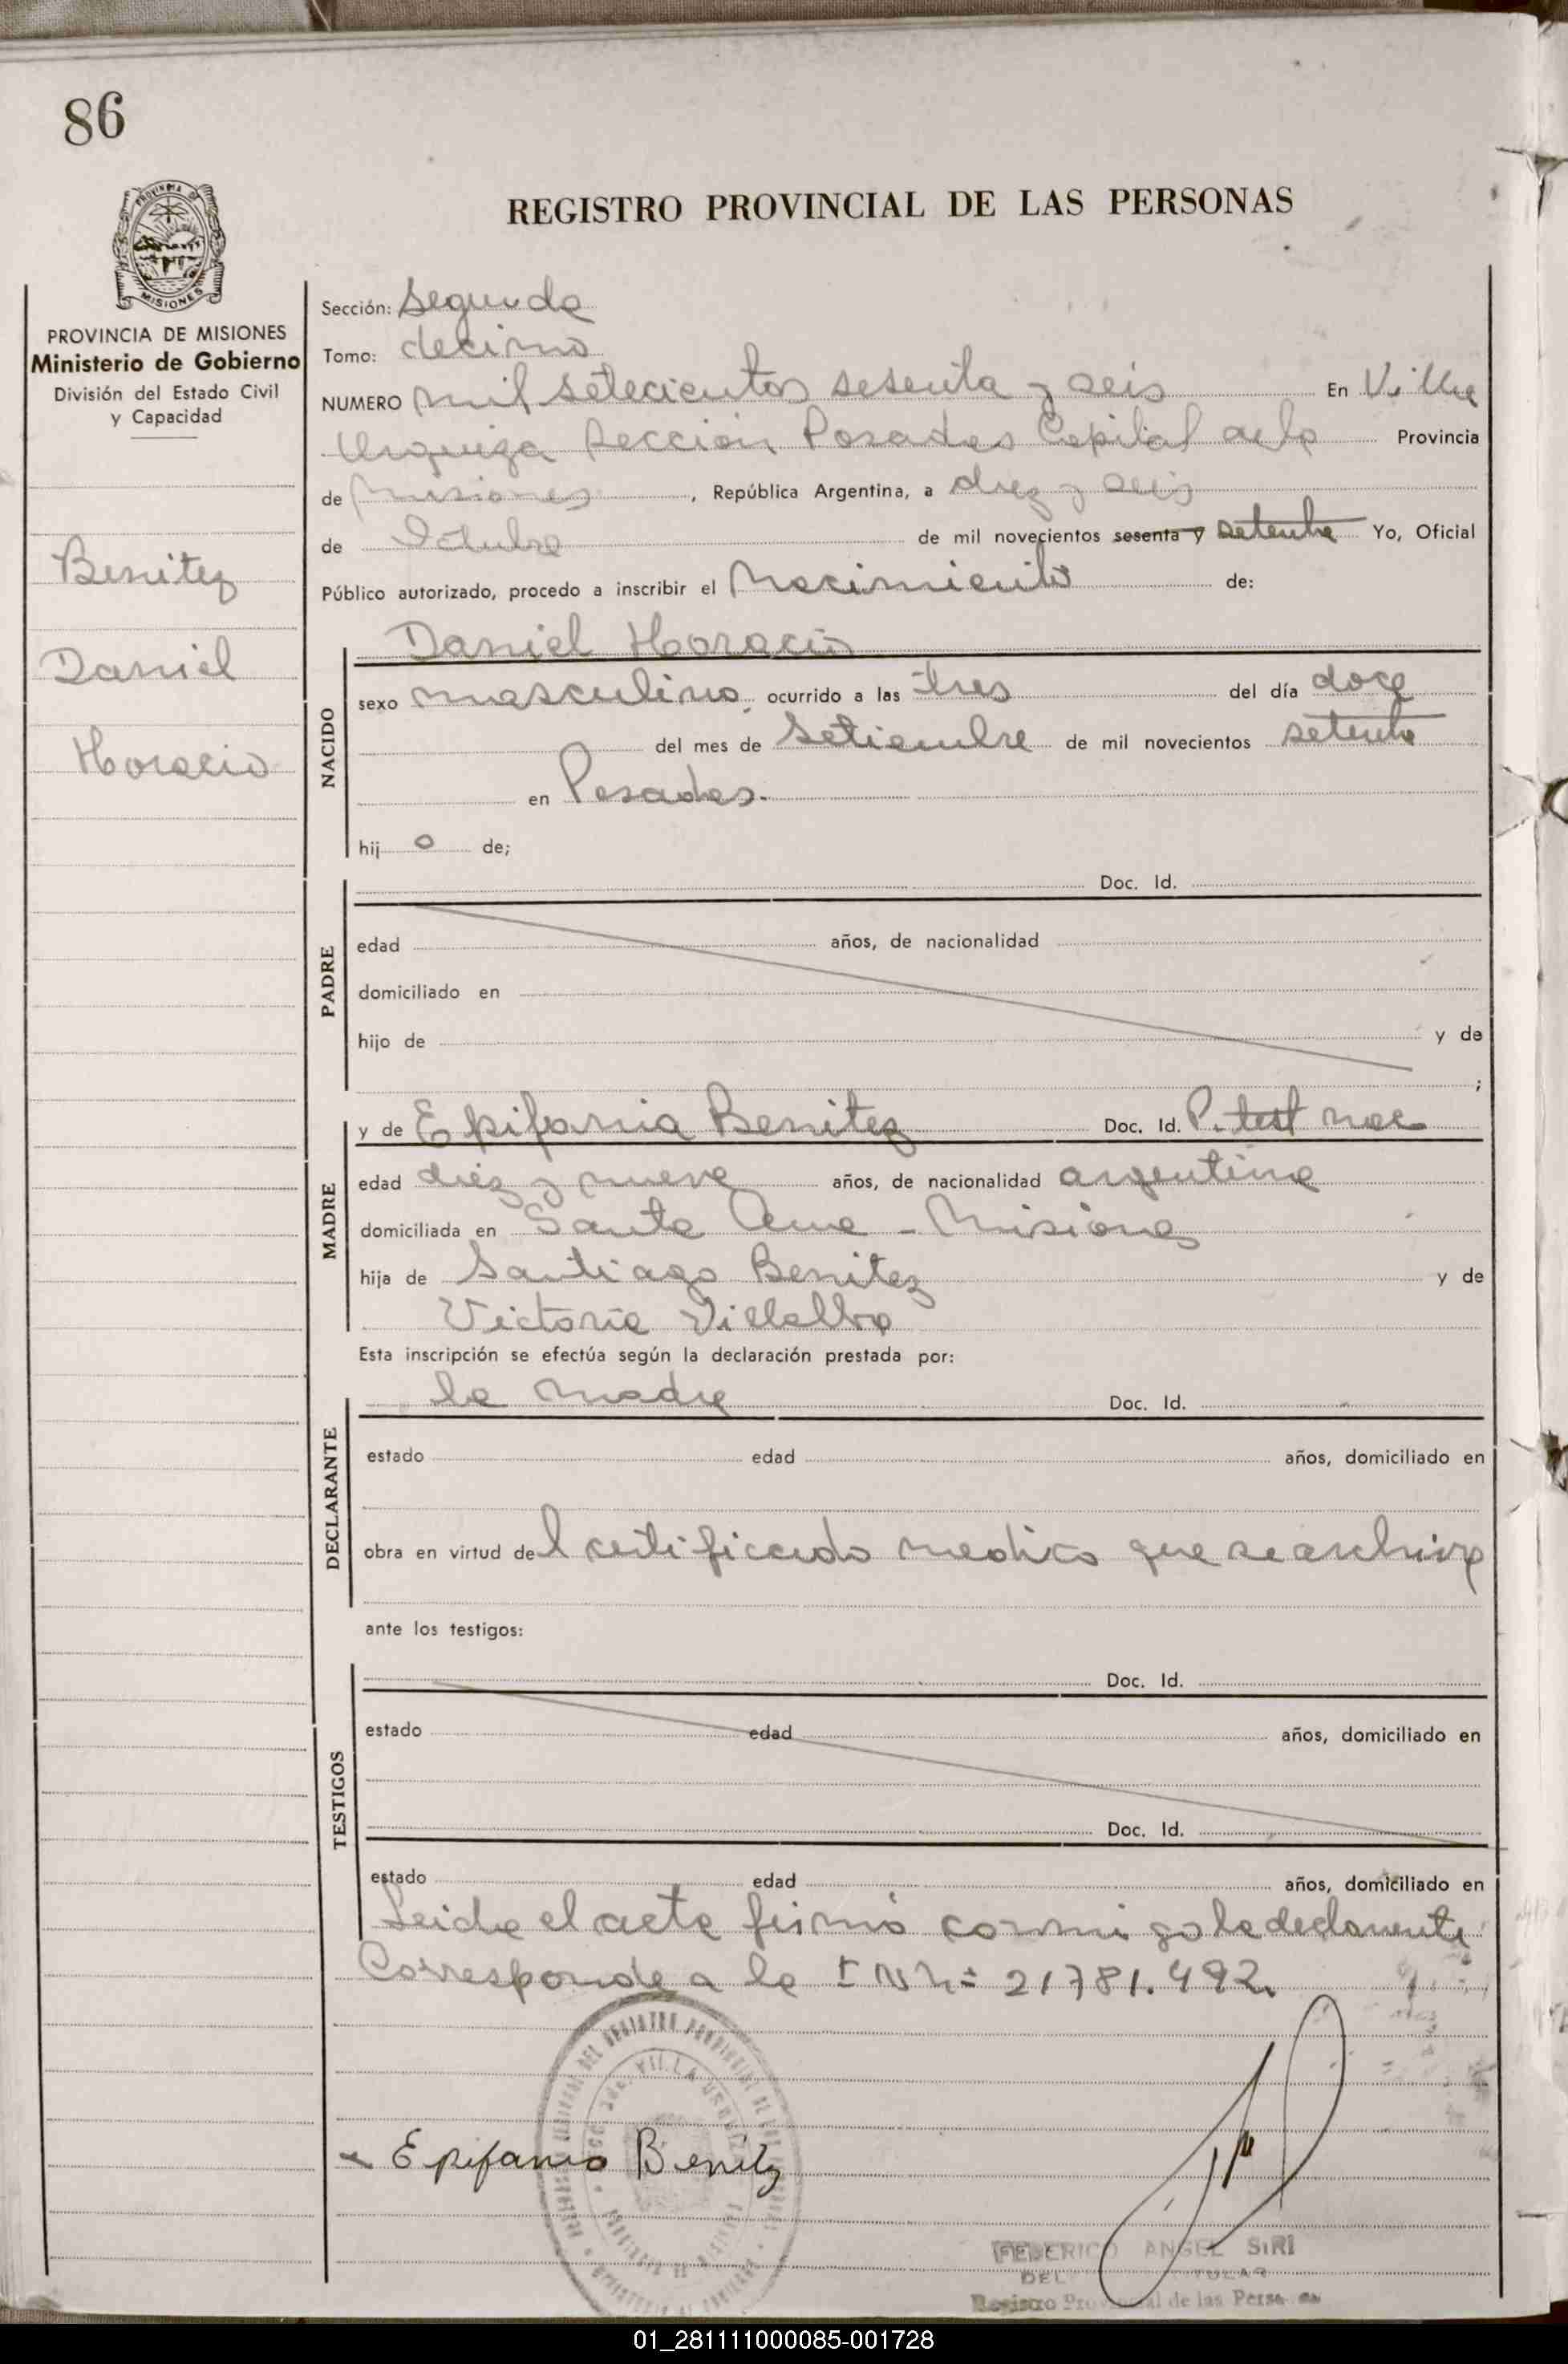 86
PROVINCIA DE
MISIONES
REGISTRO PROVINCIAL DE LAS PERSONAS
PROVINCIA DE MISIONES
Ministerio de Gobierno
División del Estado Civil
y Capacidad
Benitez
Daniel
Horacio
Sección: Segunda
Tomo: decimo
NUMERO mil setecientos sesenta y seis En Villa
Urquiza Sección Posadas Capital de la Provincia
de Misiones, República Argentina, a diez y seis
de Octubre de mil novecientos sesenta y setenta Yo, Oficial
Público autorizado, procedo a inscribir el Nacimiento de:
Daniel Horacio
NACIDO
sexo masculino ocurrido a las tres del día doce
del mes de Setiembre de mil novecientos setenta
en Posadas.
hij o de;
PADRE
Doc. Id.
edad años, de nacionalidad
domiciliado en
hijo de y de
;
MADRE
y de Epifania Benitez Doc. Id. P. test nac
edad diez y nueve años, de nacionalidad argentina
domiciliada en Santa Ana - Misiones
hija de Santiago Benitez y de
Victoria Villalba
Esta inscripción se efectúa según la declaración prestada por:
DECLARANTE
la madre Doc. Id.
estado edad años, domiciliado en
obra en virtud del certificado medico que se archiva
ante los testigos:
TESTIGOS
Doc. Id.
estado edad años, domiciliado en
Doc. Id.
estado edad años, domiciliado en
Leida el acta firmó conmigo la declarante
Corresponde a la I N Nº 21781.492.
Epifania Benitz
FEDERICO ANGEL SIRI
Registro Provincial de las Personas
01_281111000085-001728